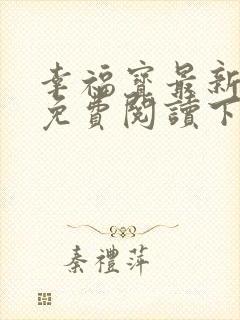 幸福寶最新
免費閱讀下
秦禮萍